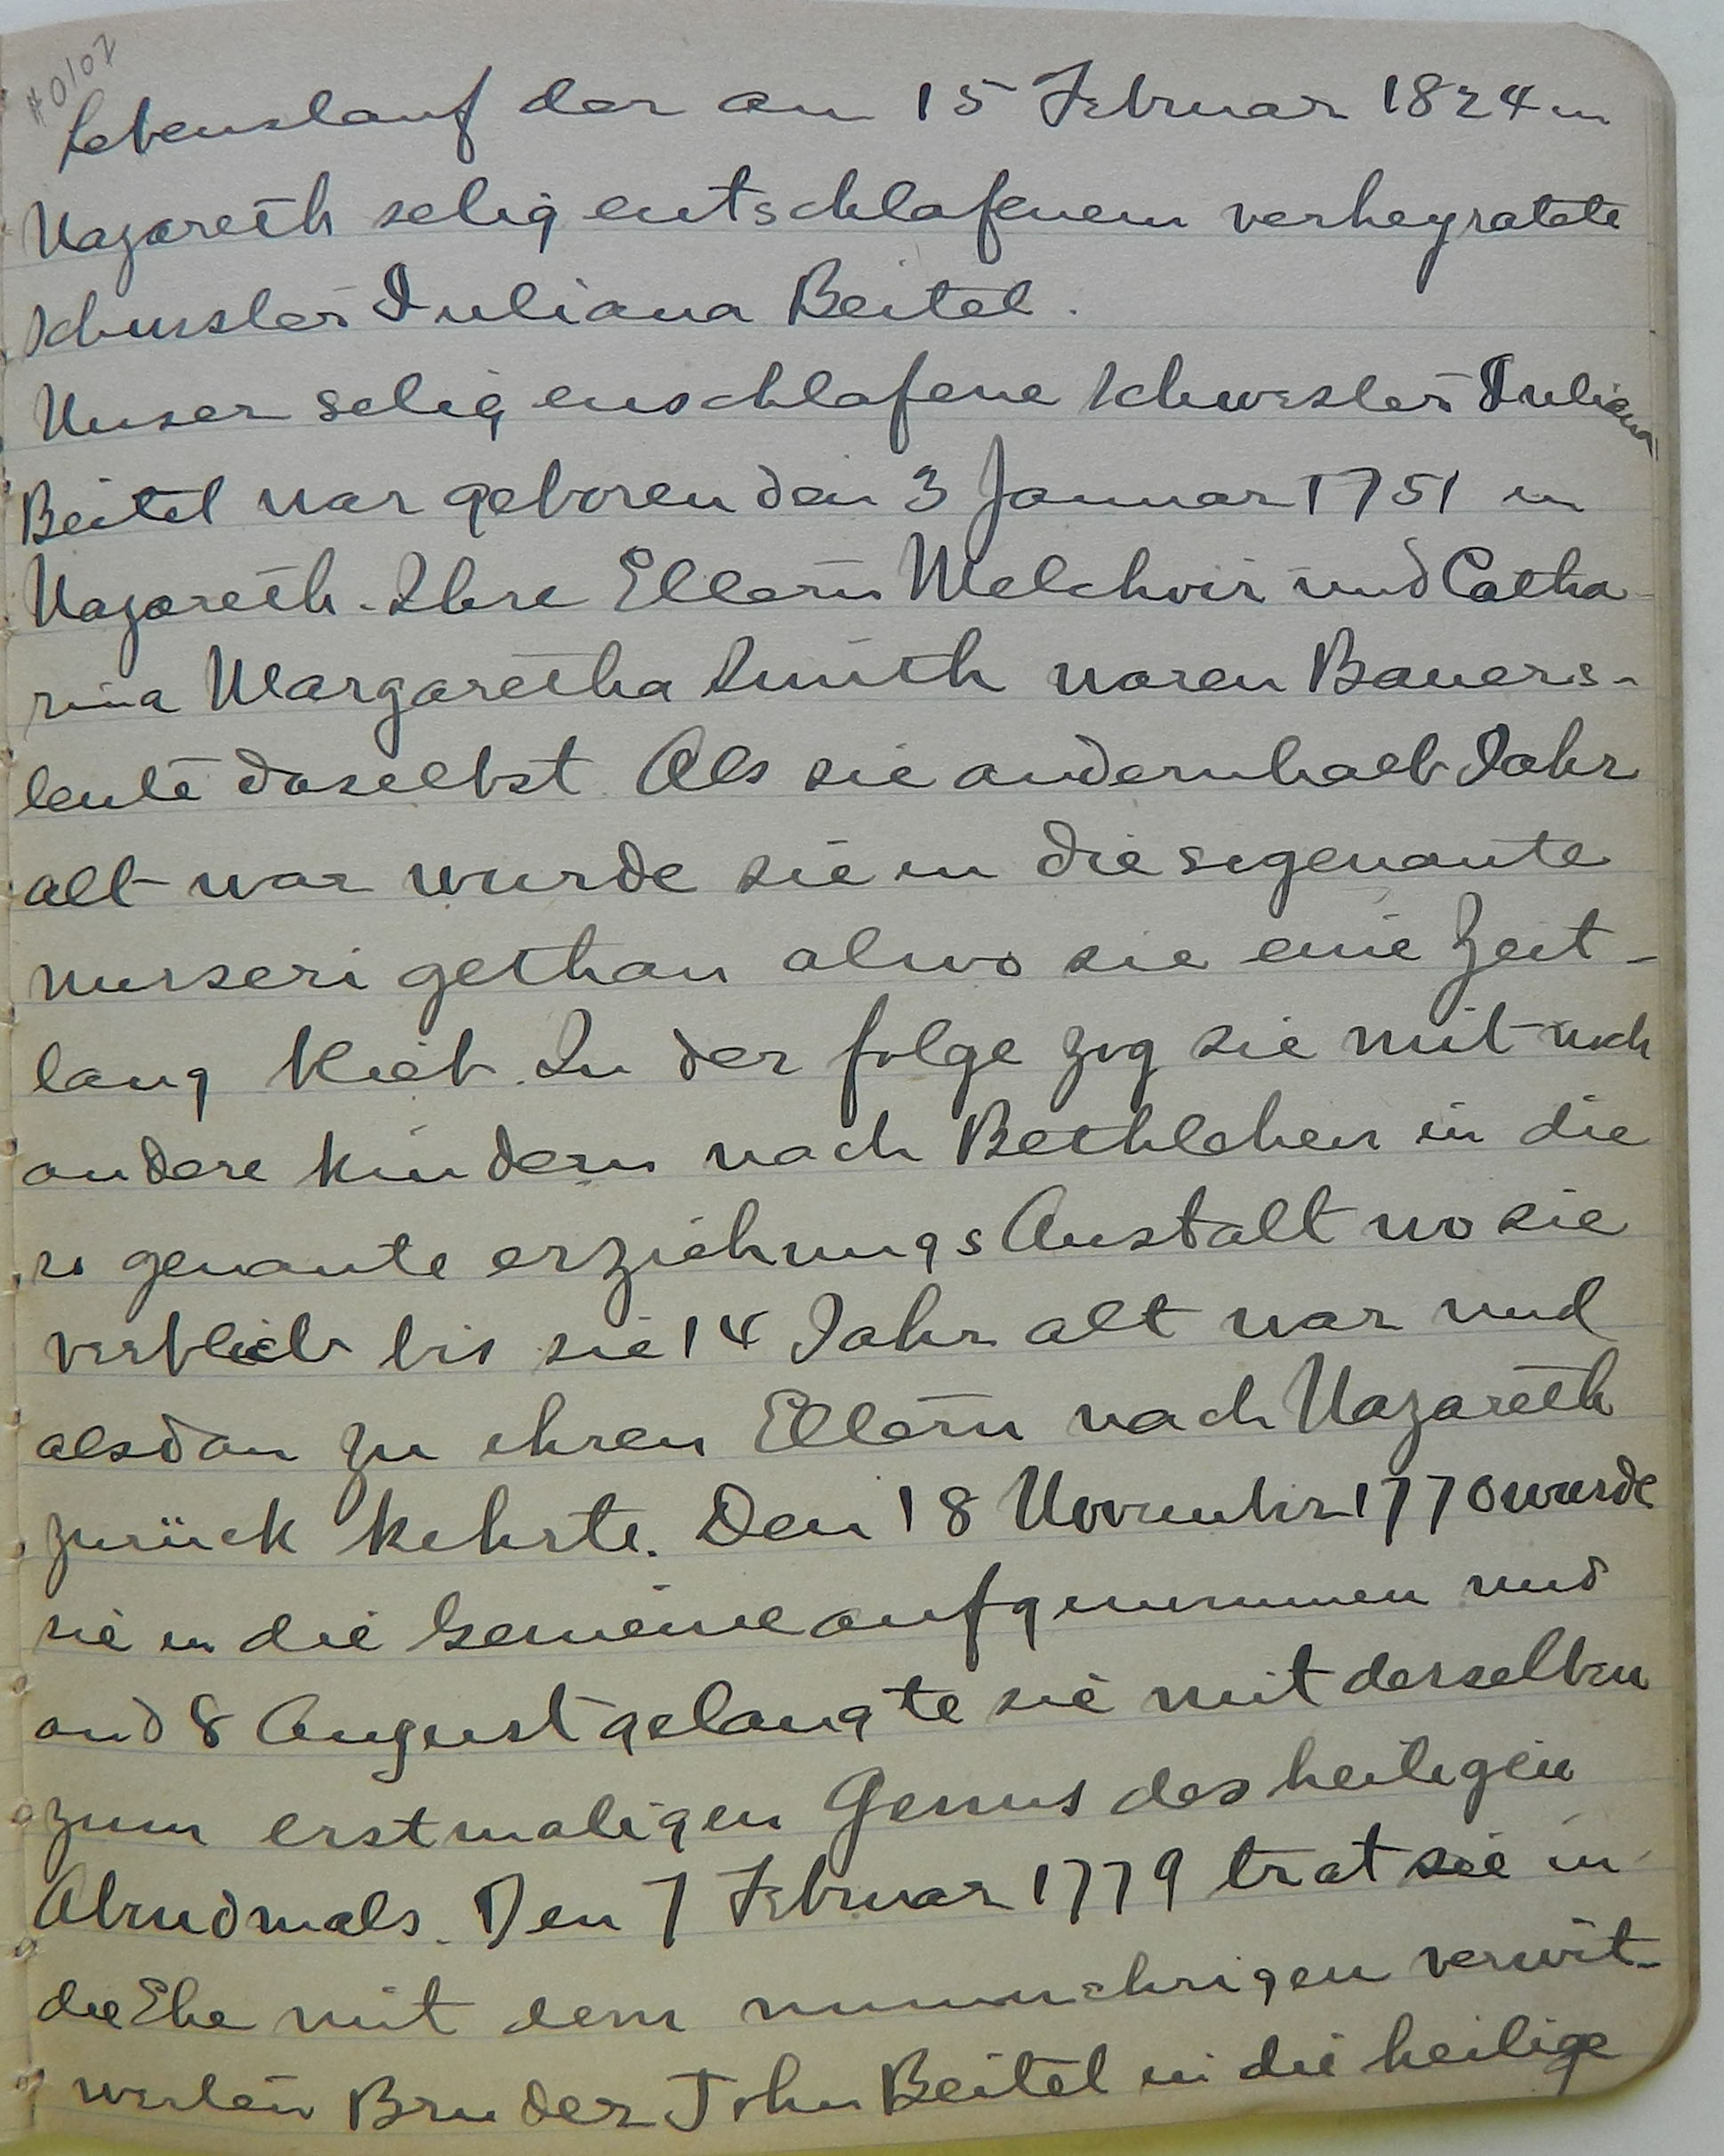 #0107
Lebenslauf der am 15 Februar 1824 in
Nazareth selig entschlafenem verheyratete
Schwester Juliana Beitel.
Unser selig enschlafene Schwester Juliana
Beitel war geboren den 3 Januar 1751 in
Nazareth. Ihre Eltern Melchoir und Catha-
rina Margaretha Smith waren Bauers-
leute daselbst. Als sie andernhalb Jahr
alt war wurde sie in die sogenante
nurseri gethan alwo sie eine Zeit-
lang blieb. In der folge zog sie mit noch
andere kindern nach Bethlehem in die
so genante erziehungs Anstalt wo sie
verblieb bis sie 14 Jahr alt war und
alsdan zu ihren Eltern nach Nazareth
zurück kehrte. Den 18 November 1770 wurde
sie in die Gemeine aufgenommen und
and 8 August gelangte sie mit derselben
zum erstmaligen Genus des heiligen
Abendmals. Den 7 Februar 1779 trat sie in
die Ehe mit dem nunmehrigen verwit-
weten Bruder John Beitel in die heilige